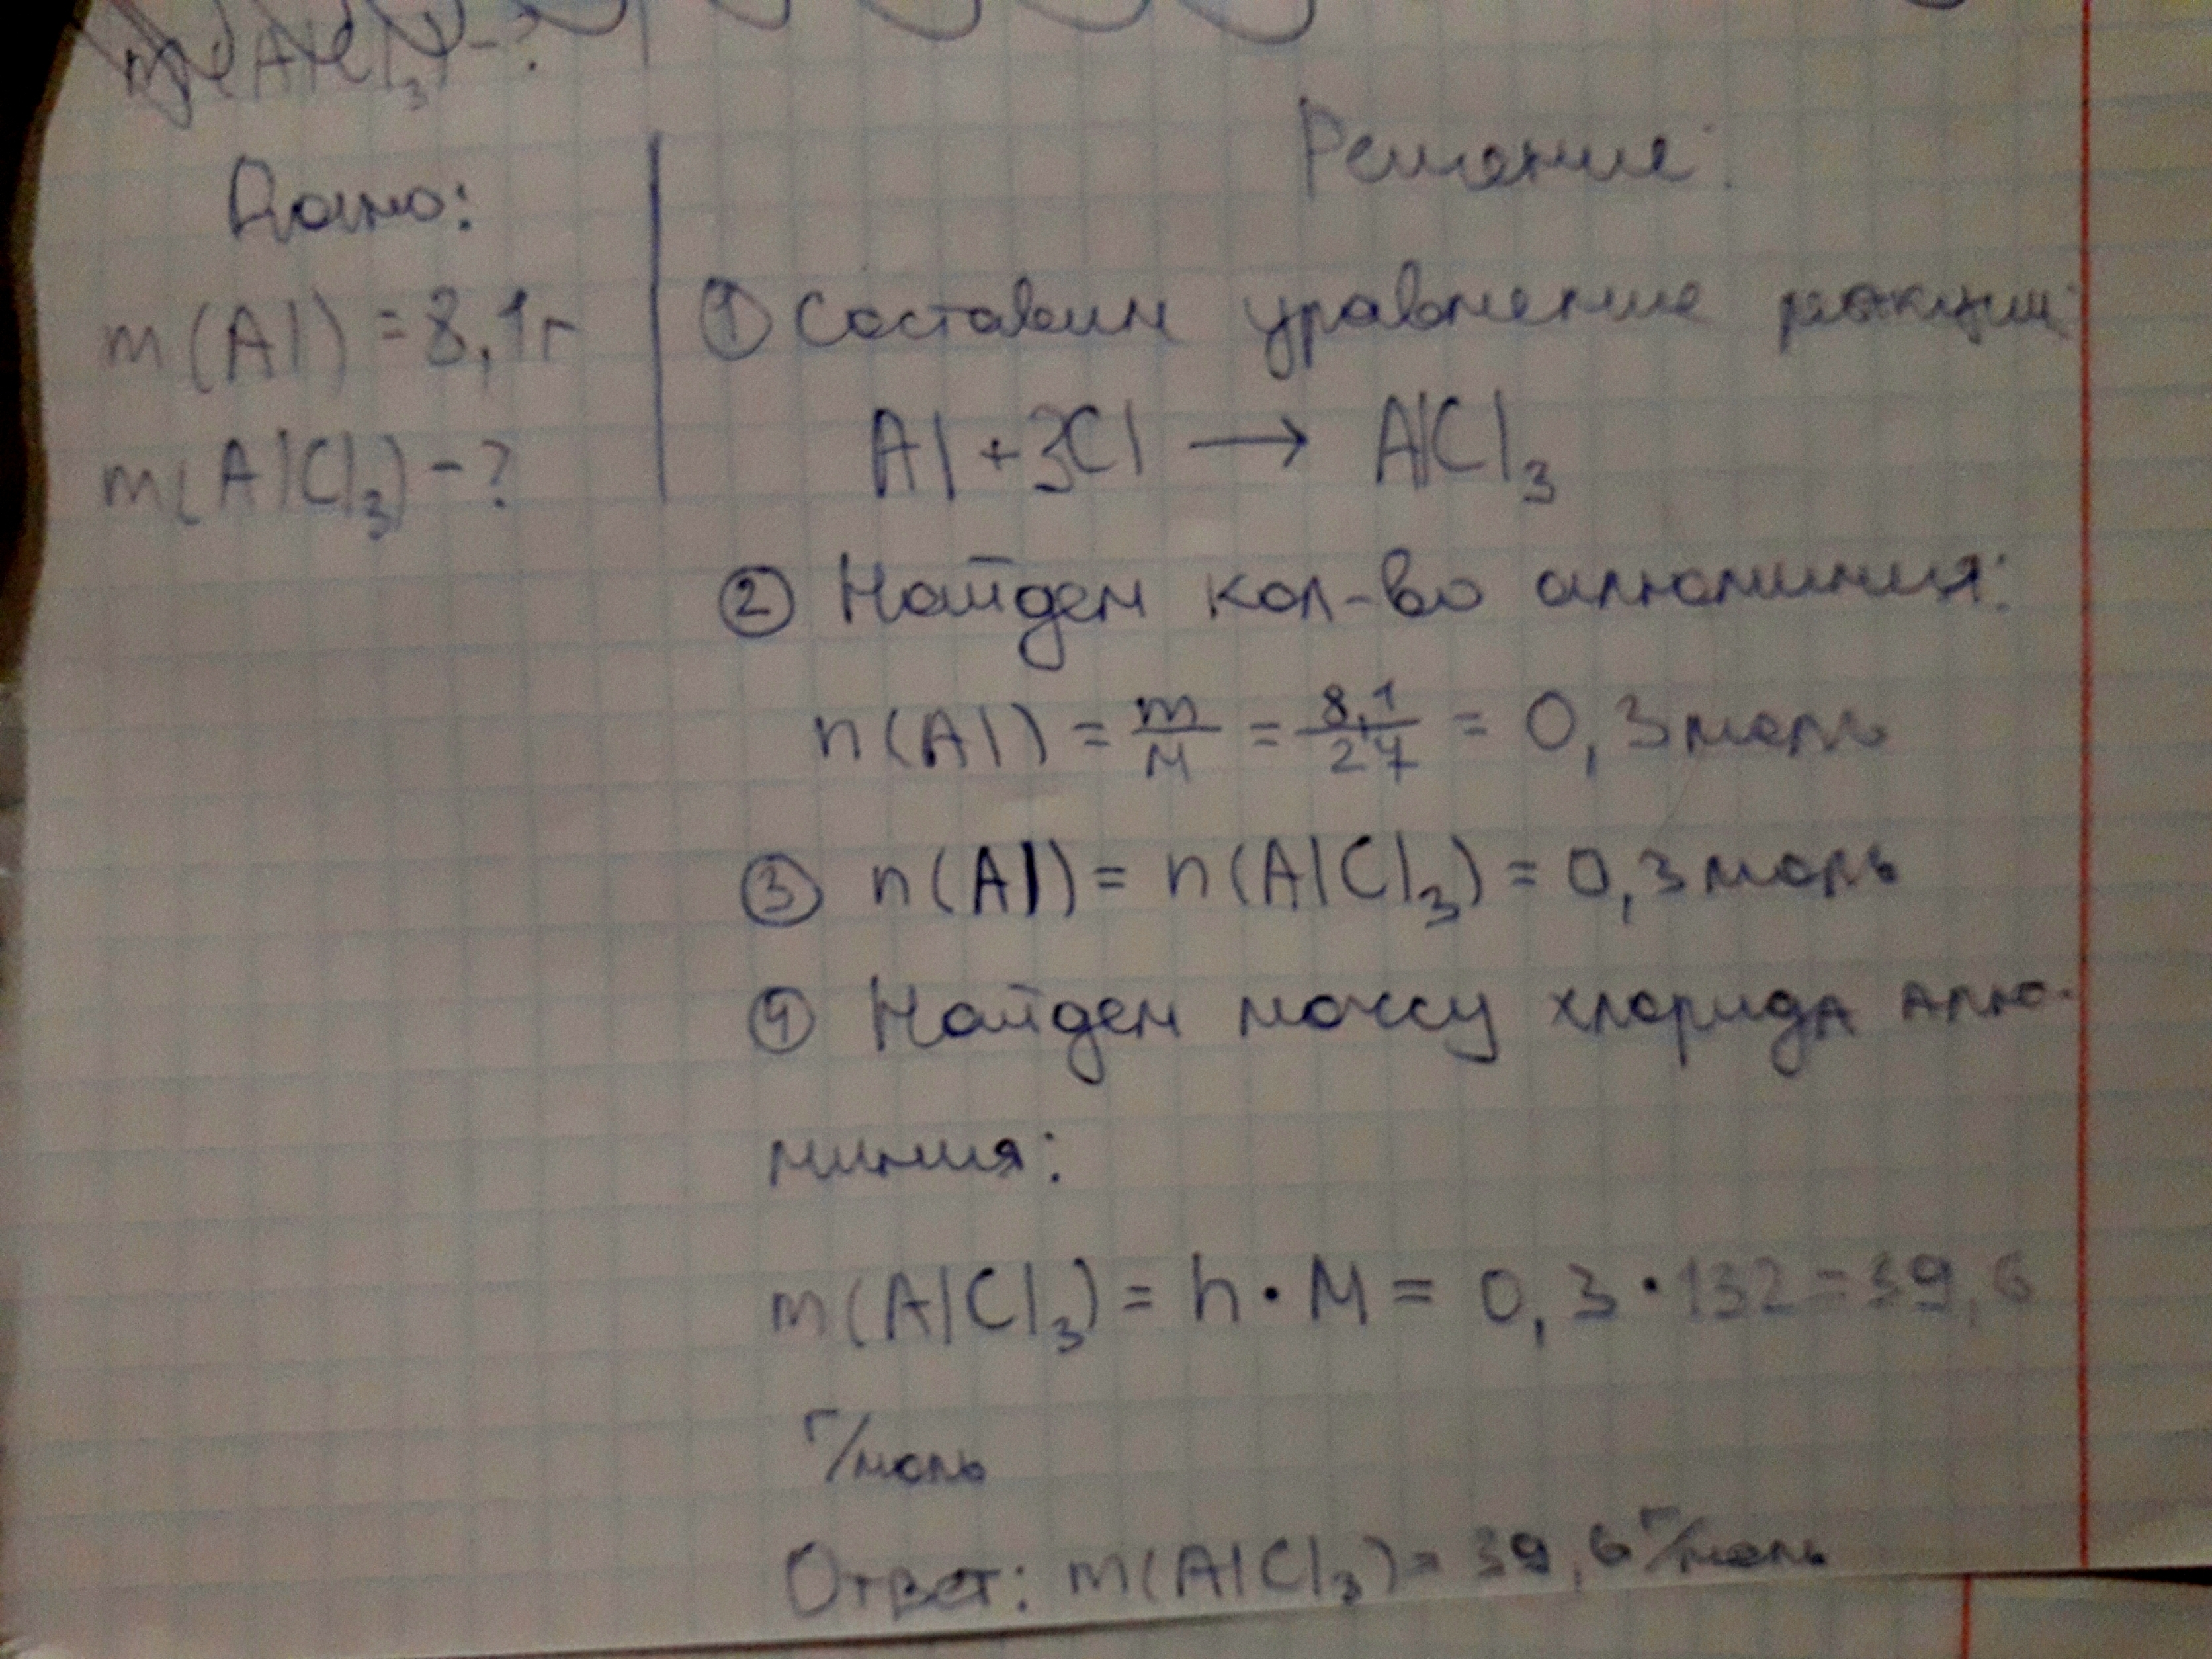 m(AlCl₃) - ?
Дано:
m(Al) = 8,1г
m(AlCl₃) - ?
Решение:
① Составим уравнение реакции:
Al + 3Cl → AlCl₃
② Найдем кол-во алюминия:
n(Al) = m/M = 8,1/27 = 0,3 моль
③ n(Al) = n(AlCl₃) = 0,3 моль
④ Найдем массу хлорида алю-
миния:
m(AlCl₃) = n · M = 0,3 · 132 = 39,6
г/моль
Ответ: m(AlCl₃) = 39,6 г/моль